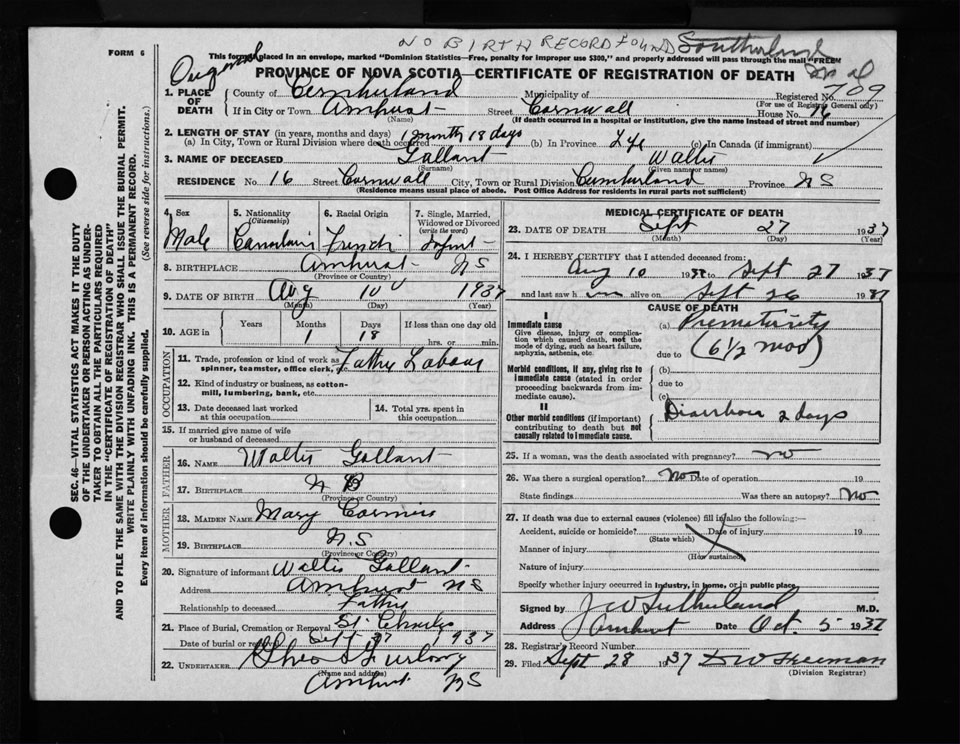 NO BIRTH RECORD FOUND
FORM 6
This form, if placed in an envelope, marked "Dominion Statistics—Free, penalty for improper use $300," and properly addressed will pass through the mail "FREE"
PROVINCE OF NOVA SCOTIA—CERTIFICATE OF REGISTRATION OF DEATH
1. PLACE OF DEATH
County of Cumberland Municipality of Registered No. 709
(For use of Registrar General only)
If in City or Town Amherst Street Cornwall House No. 16
(Name) (If death occurred in a hospital or institution, give the name instead of street and number)
2. LENGTH OF STAY (in years, months and days) 1 month 18 days
(a) In City, Town or Rural Division where death occurred (b) In Province Life (c) In Canada (if immigrant)
3. NAME OF DECEASED Gallant Walter
(Surname) (Given name or names)
RESIDENCE No. 16 Street Cornwall City, Town or Rural Division Cumberland Province NS
(Residence means usual place of abode. Post Office Address for residents in rural parts not sufficient)
4. Sex Male
5. Nationality (Citizenship) Canadian
6. Racial Origin French
7. Single, Married, Widowed or Divorced (write the word) Infant
8. BIRTHPLACE Amherst NS
(Province or Country)
9. DATE OF BIRTH Aug 10 1937
(Month) (Day) (Year)
10. AGE in Years Months 1 Days 18 If less than one day old
hrs. or min.
OCCUPATION
11. Trade, profession or kind of work as spinner, teamster, office clerk, etc. Father Labour
12. Kind of industry or business, as cotton-mill, lumbering, bank, etc.
13. Date deceased last worked at this occupation
14. Total yrs. spent in this occupation
15. If married give name of wife or husband of deceased
FATHER
16. NAME Walter Gallant
17. BIRTHPLACE N B
(Province or Country)
MOTHER
18. MAIDEN NAME Mary Cormier
19. BIRTHPLACE N.S
(Province or Country)
20. Signature of informant Walter Gallant
Address Amherst NS
Relationship to deceased Father
21. Place of Burial, Cremation or Removal St. Charles
Date of burial or removal Sept 1937
22. UNDERTAKER Furlong
(Name and address)
Amherst NS
MEDICAL CERTIFICATE OF DEATH
23. DATE OF DEATH Sept 27 1937
(Month) (Day) (Year)
24. I HEREBY CERTIFY that I attended deceased from:
Aug 10 1937 to Sept 27 1937
and last saw h im alive on Sept 26 1937
CAUSE OF DEATH
I
Immediate cause
Give disease, injury or complication which caused death, not the mode of dying, such as heart failure, asphyxia, asthenia, etc.
(a) Prematurity
due to (6 1/2 mos)
Morbid conditions, if any, giving rise to immediate cause (stated in order proceeding backwards from immediate cause).
(b)
due to
(c)
II
Other morbid conditions (if important) contributing to death but not causally related to immediate cause.
Diarrhoea 2 days
25. If a woman, was the death associated with pregnancy? no
26. Was there a surgical operation? No Date of operation 19
State findings Was there an autopsy? No
27. If death was due to external causes (violence) fill in also the following:—
Accident, suicide or homicide? Date of injury 19
(State which)
Manner of injury
(How sustained)
Nature of injury
Specify whether injury occurred in industry, in home, or in public place
Signed by J W Sutherland M.D.
Address Amherst Date Oct. 5 1937
28. Registrar's Record Number
29. Filed Sept 28 1937 Freeman
(Division Registrar)
SEC. 46—VITAL STATISTICS ACT MAKES IT THE DUTY
OF THE UNDERTAKER OR PERSON ACTING AS UNDERTAKER TO OBTAIN ALL THE PARTICULARS REQUIRED
IN THE "CERTIFICATE OF REGISTRATION OF DEATH"
AND TO FILE THE SAME WITH THE DIVISION REGISTRAR WHO SHALL ISSUE THE BURIAL PERMIT.
WRITE PLAINLY WITH UNFADING INK. THIS IS A PERMANENT RECORD.
Every item of information should be carefully supplied. (See reverse side for instructions.)